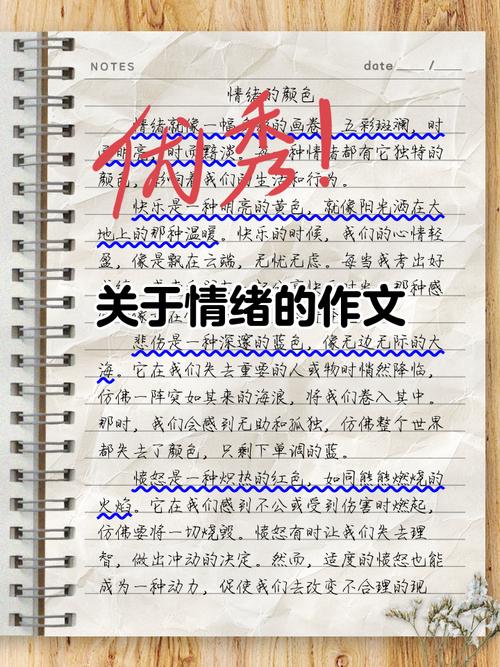 NOTES
date ___ /___
情绪的颜色
情绪就像一幅的画卷,五彩斑斓,时
明亮,时而黯淡。每一种情绪都有它独特的
颜色,影响着我们的生活和行为。
优秀!
快乐是一种明亮的黄色,就像阳光洒在大
地上的那种温暖。快乐的时候,我们的心情轻
盈,像是飘在云端,无忧无虑。每当我考出好
那种感
关于情绪的作文
悲伤是一种深邃的蓝色,像无边无际的大
海。它在我们失去重要的人或物时悄然降临,
仿佛一阵突如其来的海浪,将我们卷入其中。
那时,我们会感到无助和孤独,仿佛整个世界
都失去了颜色,只剩下单调的蓝。
愤怒是一种炽热的红色,如同熊熊燃烧的
火焰。它在我们感到不公或受到伤害时燃起,
仿佛要将一切烧毁。愤怒有时让我们失去理
智,做出冲动的决定。然而,适度的愤怒也能
成为一种动力,促使我们去改变不合理的现